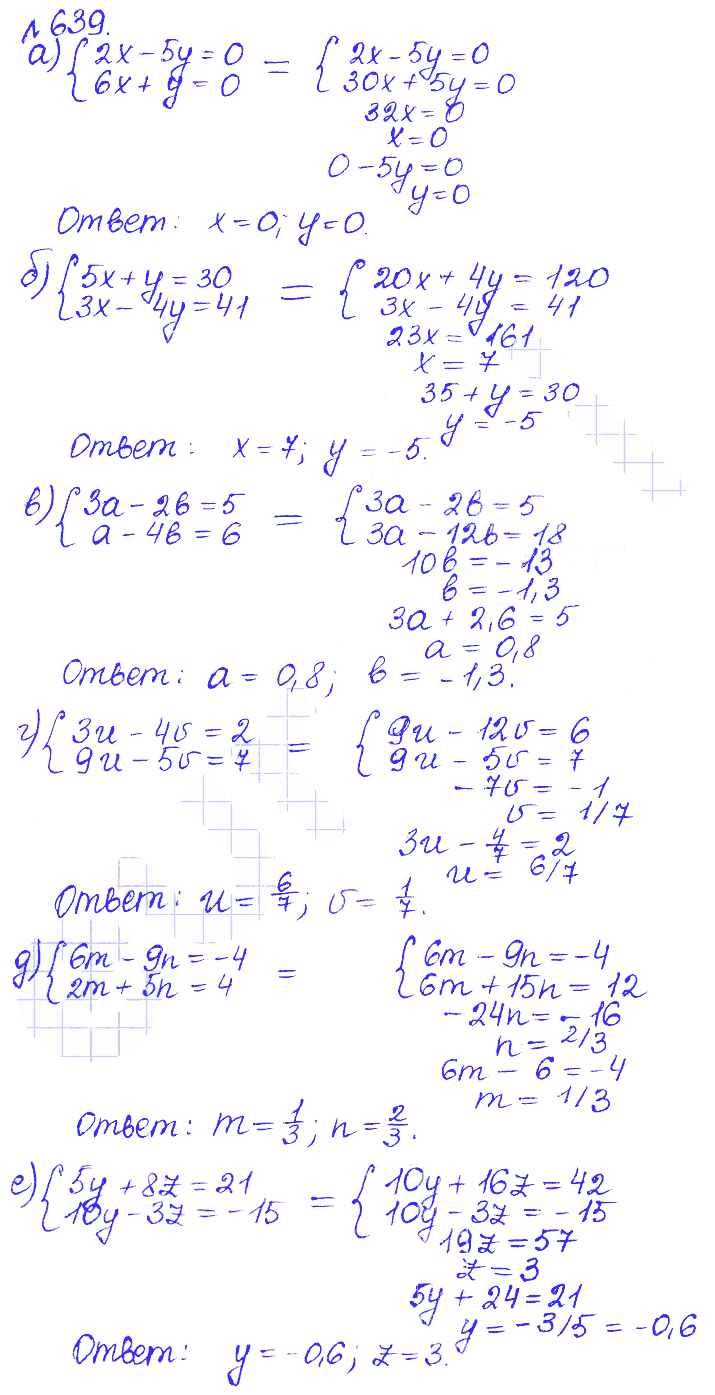 №639.
а) { 2x - 5y = 0 = { 2x - 5y = 0
6x + y = 0 30x + 5y = 0
32x = 0
x = 0
0 - 5y = 0
y = 0
Ответ: x = 0; y = 0.
б) { 5x + y = 30 = { 20x + 4y = 120
3x - 4y = 41 3x - 4y = 41
23x = 161
x = 7
35 + y = 30
y = -5
Ответ: x = 7; y = -5.
в) { 3a - 2в = 5 = { 3a - 2в = 5
a - 4в = 6 3a - 12в = 18
10в = -13
в = -1,3
3a + 2,6 = 5
a = 0,8
Ответ: a = 0,8; в = -1,3.
г) { 3u - 4v = 2 = { 9u - 12v = 6
9u - 5v = 7 9u - 5v = 7
-7v = -1
v = 1/7
3u - 4/7 = 2
u = 6/7
Ответ: u = 6/7; v = 1/7.
д) { 6m - 9n = -4 = { 6m - 9n = -4
2m + 5n = 4 6m + 15n = 12
-24n = -16
n = 2/3
6m - 6 = -4
m = 1/3
Ответ: m = 1/3; n = 2/3.
е) { 5y + 8z = 21 = { 10y + 16z = 42
10y - 3z = -15 10y - 3z = -15
19z = 57
z = 3
5y + 24 = 21
y = -3/5 = -0,6
Ответ: y = -0,6; z = 3.